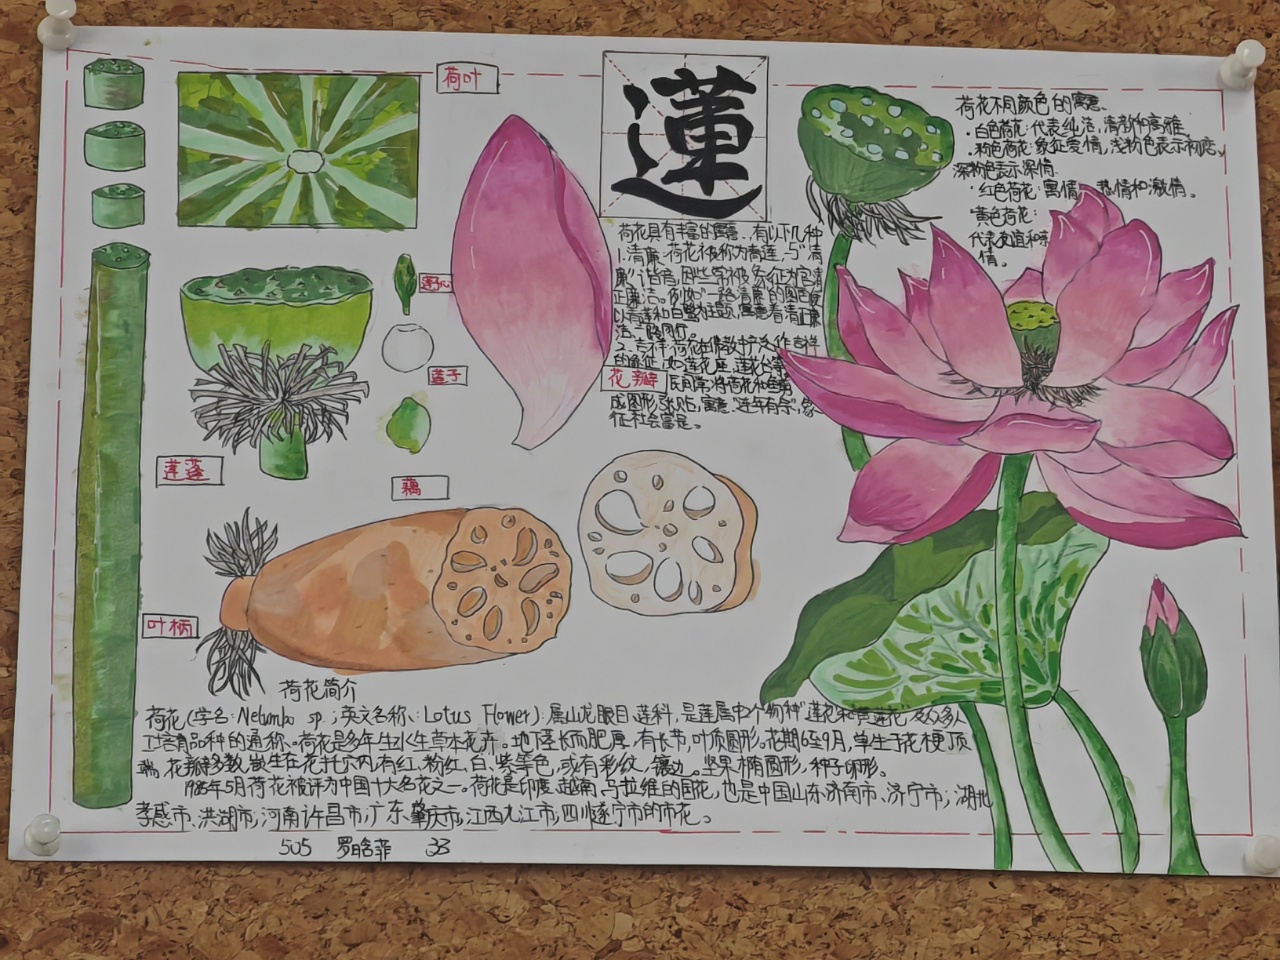 荷叶
蓮
荷花不同颜色的寓意
·白色荷花:代表纯洁,清新和高雅
·粉色荷花:象征爱情,浅粉色表示初恋,
深粉色表示深情.
·红色荷花:寓情 热情和激情。
·黄色荷花:
代表友谊和亲
情。
荷花具有丰富的寓意,有以下几种
1.清廉:荷花被称为青莲,与"清
廉"谐音,因此常被象征为官清
正廉洁。例如"一路清廉"的图色便
以青莲和白鹭为主题,寓意着清正廉
洁一路同行。
2.吉祥:荷花在佛教中广泛作吉祥
的象征,如莲花座、莲花台等
民间常将荷花和
成图形张贴,寓意"连年有余",象
征社会富足。
莲子心
莲子
花瓣
莲蓬
藕
叶柄
荷花简介
荷花(学名:Nelumbo sp.;英文名称:Lotus Flower):属山龙眼目、莲科,是莲属中个物种"莲花和黄莲花"及众多人
工培育品种的通称。荷花是多年生水生草本花卉。地下茎长而肥厚,有长节,叶盾圆形。花期6至9月,单生于花梗顶
端,花瓣多数,散生在花托穴内,有红、粉红、白、紫等色,或有彩纹、镶边。坚果椭圆形,种子卵形。
1985年5月荷花被评为中国十大名花之一。荷花是印度、越南、马拉维的国花,也是中国山东济南市、济宁市;湖北
孝感市、洪湖市;河南许昌市;广东肇庆市;江西九江市;四川遂宁市的市花。
505 罗皓菲 33